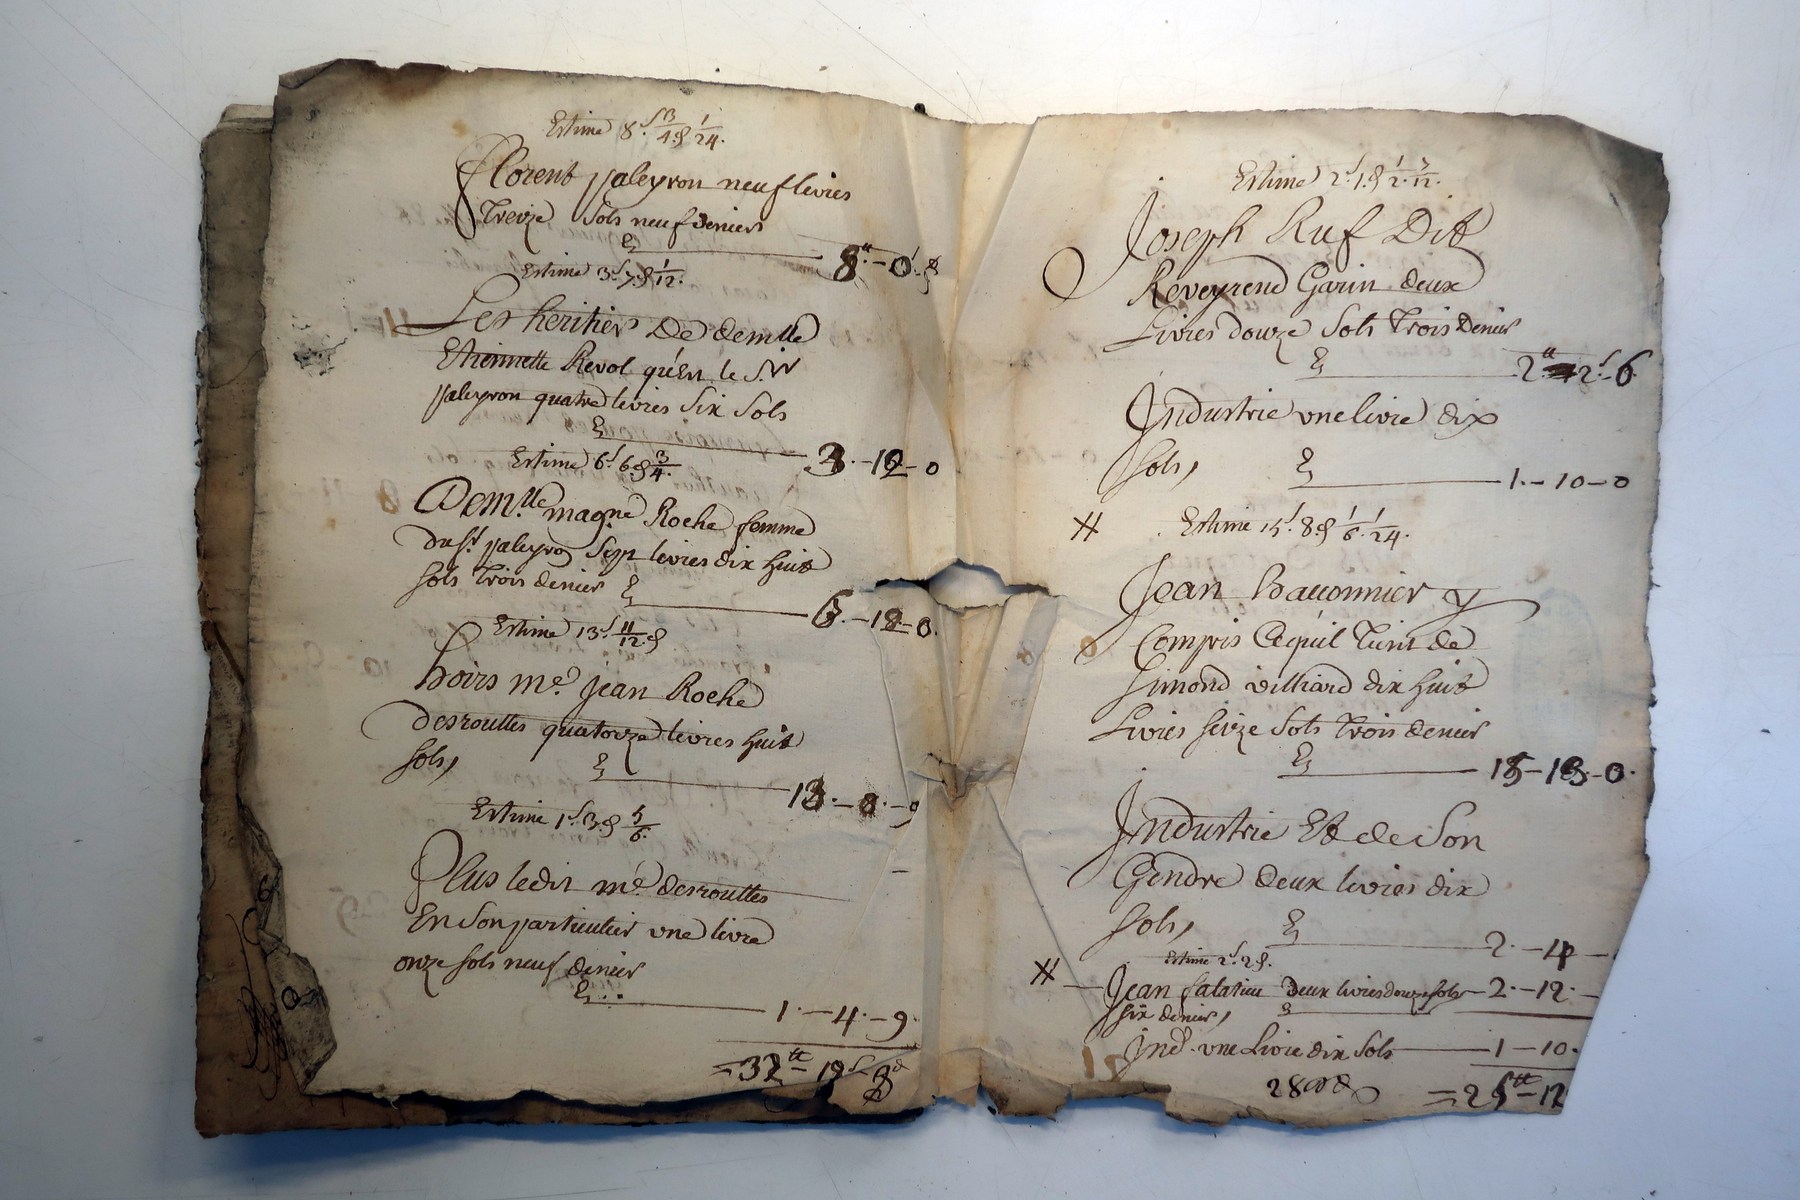 Estime 8.s 13/4.g 1/24.
Florent paleyron neuf livres
Treize sols neuf deniers
8.tt - 0.s - 8
Estime 3.s 7.g 1/12.
Les heritiers De demlle
Etiennette Revol qu'En le S.W
paleyron quatre livres Six Sols
3. - 12 - 0
Estime 6.s 6.g 3/4.
Dem.lle magne Roche femme
du sr. paleyron Sept livres dix huit
sols Trois denier
6. - 18 - 0.
Estime 13.s 11/12.g
hoirs me. Jean Roche
desrouttes quatorze livres huit
sols,
13. - 0. - 9
Estime 1.s 3.g 5/6.
Plus ledit me. desrouttes
En Son particulier une livre
onze sols neuf denier
1. - 4. - 9.
=32tt - 19s - 8d
Estime 2.s 1.g 1/2. 7/12.
Joseph Ruf Dit
Reveyrend Garin deux
Livres douze Sols Trois Denier
2.tt 2.s - 6.
Industrie une livre dix
sols, 1. - 10 - 0
Estime 15.s 8.g 1/6. 1/24.
Jean Bauonnier y
Compris Cequil Tient de
Simond villiard dix huit
Livres seize Sols Trois denier
15 - 13 - 0.
Industrie Et de Son
Gendre deux livres dix
sols, 2. - 4 -
Estime 2.s 2.g.
Jean falatieu Deux livres douze sols - 2. - 12. -
six denier,
Ind. une Livre dix Sols 1 - 10.
=25tt - 12